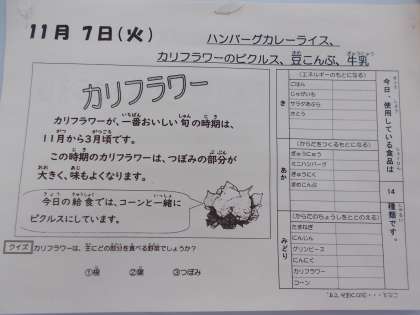 11月 7日(火)
ハンバーグカレーライス、
カリフラワーのピクルス、昔こんぶ、牛乳
カリフラワー
カリフラワーが、一番おいしい旬の時期は、
11月から3月頃です。
この時期のカリフラワーは、つぼみの部分が
大きく、味もよくなります。
今日の給食では、コーンと一緒に
ピクルスにしています。
クイズ カリフラワーは、主にどの部分を食べる野菜でしょうか?
①根 ②葉 ③つぼみ
今日、使用している食品は
14
種類です。
き
(エネルギーのもとになる)
ごはん
じゃがいも
サラダあぶら
さとう
あか
(からだをつくるもとになる)
ぎゅうにゅう
ミニハンバーグ
ぎゅうにく
きざみこんぶ
みどり
(からだのちょうしをととのえる)
たまねぎ
にんじん
グリンピース
にんにく
カリフラワー
コーン